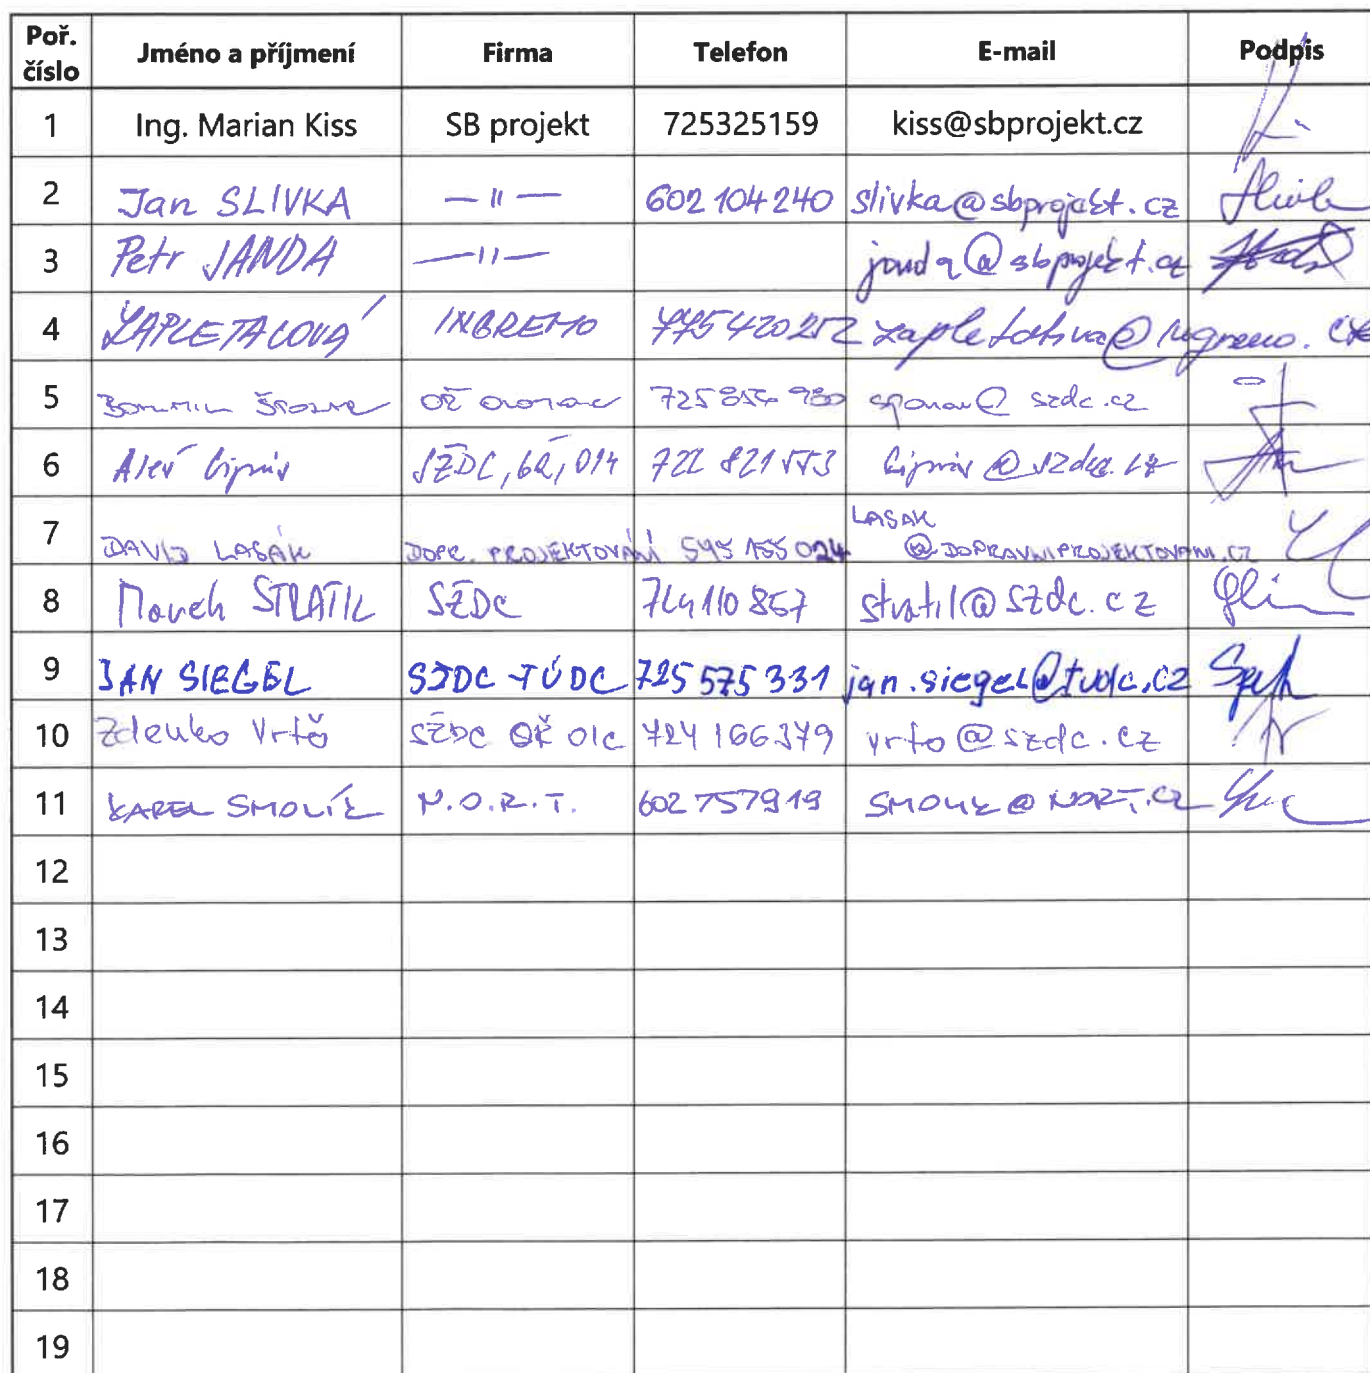 Poř. číslo Jméno a příjmení Firma Telefon E-mail Podpis
1 Ing. Marian Kiss SB projekt 725325159 kiss@sbprojekt.cz
2 Jan SLIVKA — 11 — 602 104 240 slivka@sbprojekt.cz
3 Petr JANDA — 11 — janda@sbprojekt.cz
4 ZAPLETALOVÁ 775 420 252
5 @szdc.cz
6 Aleš SŽDC, @szdc.cz
7 DAVID LASÁK DOPR. PROJEKTOVÁNÍ 595 155 024 LASAK
@DOPRAVNIPROJEKTOVANI.CZ
8 Marek STRATIL SŽDC 724 110 857 stratil@szdc.cz
9 JAN SIEGEL SŽDC TÚDC 725 575 331 jan.siegel@tudc.cz
10 Zdenko Vrťo SŽDC OŘ Olc 724 166 379 vrto@szdc.cz
11 KAREL SMOLÍK N.O.R.T. 602 757919 SMOLIK@NORT.CZ
12
13
14
15
16
17
18
19